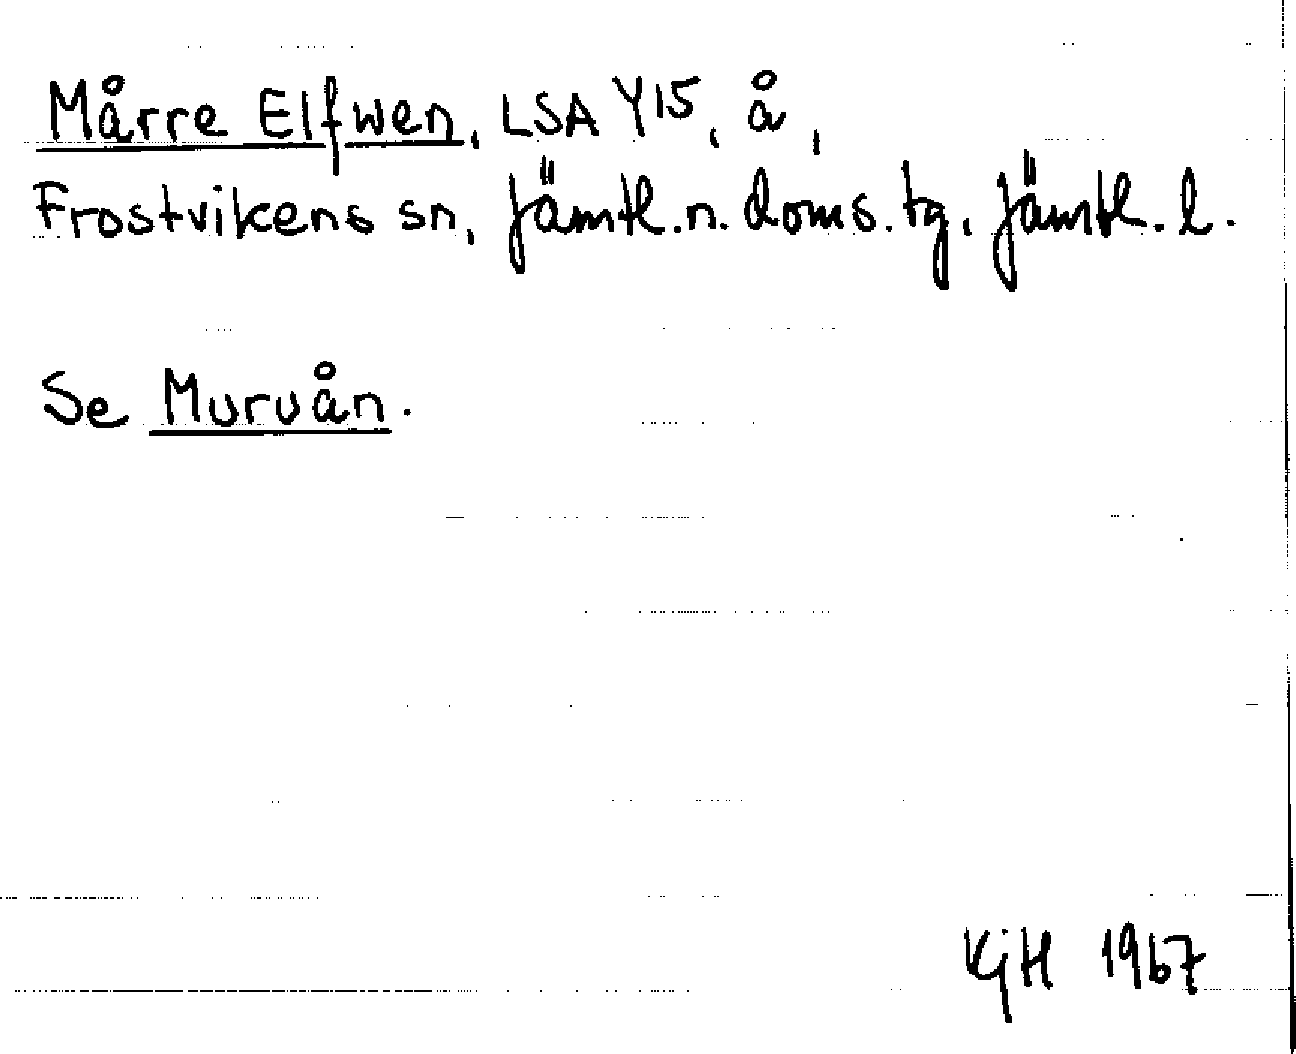 Mårre Elfwen, LSA Y15, å,
Frostvikens sn, Jämtl. n. doms. tg, Jämtl. l.
Se Murvån.
KjH 1967